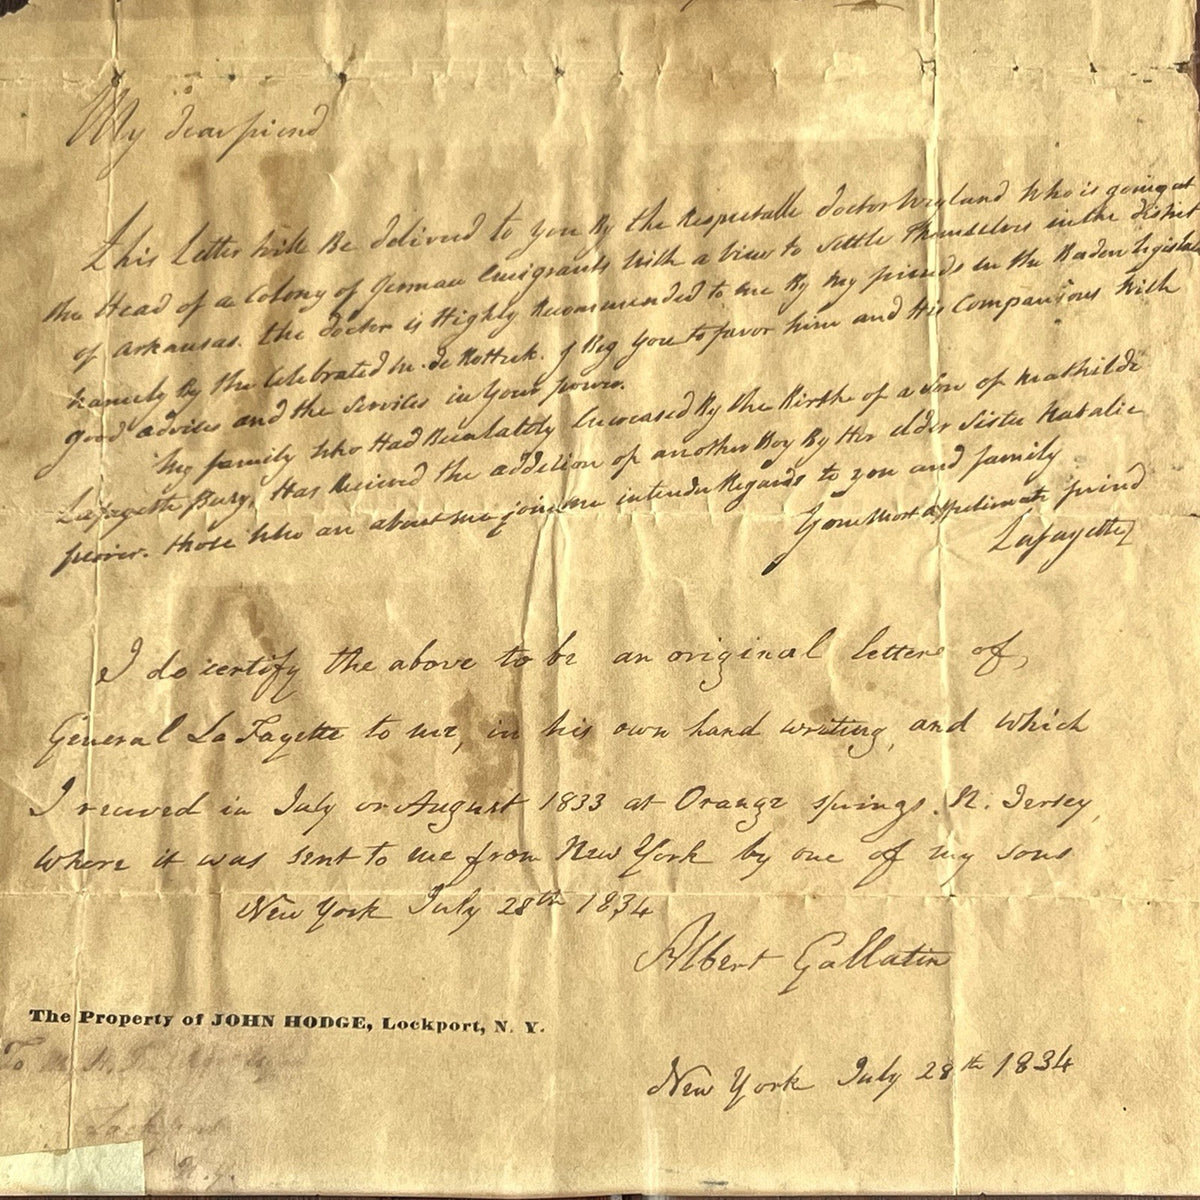 My dear friend
This Letter will Be delivered to you By the Respectable doctor Wegland who is going at
the Head of a Colony of German Emigrants with a view to Settle Themselves in the district
of Arkansas. the doctor is Highly Recommended to me By my friends in the Baden legislat
namely By the Celebrated M. de Rotteck. I Beg you to favor him and His Companions with
good advices and the Services in Your power.
My family who Had Been lately Encreased By the Birth of a Son of Mathilde
Lafayette Bury, Has Received the addition of another Boy By Her elder Sister Natalie
perier. those who are about me join me in tender Regards to you and family
Your Most affectionate friend
Lafayette
I do certify the above to be an original letter of
General LaFayette to me, in his own hand writing, and which
I received in July or August 1833 at Orange springs. N. Jersey,
where it was sent to me from New York by one of my sons
New York July 28th 1834
Albert Gallatin
The Property of JOHN HODGE, Lockport, N. Y.
To
New York July 28th 1834
Lockport
N.Y.